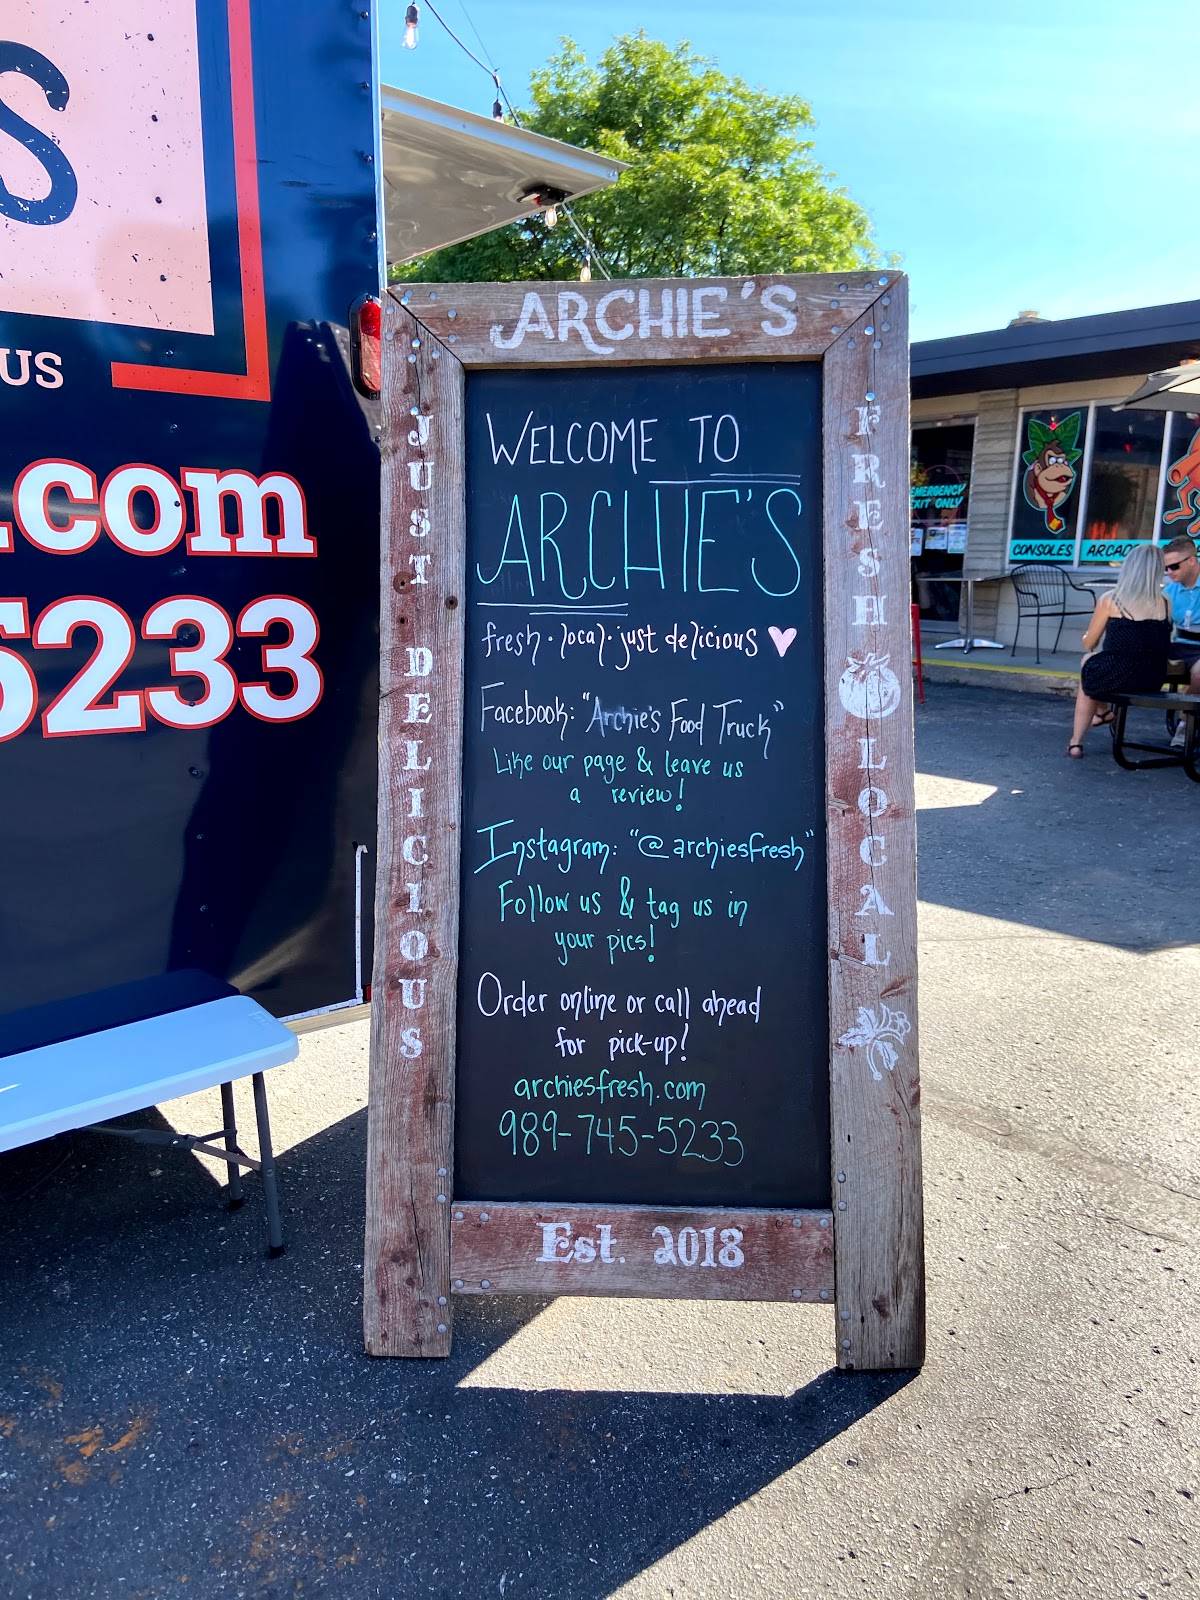 S
US
.com
5233
ARCHIE'S
JUST DELICIOUS
FRESH LOCAL
WELCOME TO
ARCHIE'S
fresh · local · just delicious
Facebook: "Archie's Food Truck"
Like our page & leave us
a review!
Instagram: "@archiesfresh"
Follow us & tag us in
your pics!
Order online or call ahead
for pick-up!
archiesfresh.com
989-745-5233
Est. 2018
EMERGENCY
EXIT ONLY
CONSOLES ARCADE